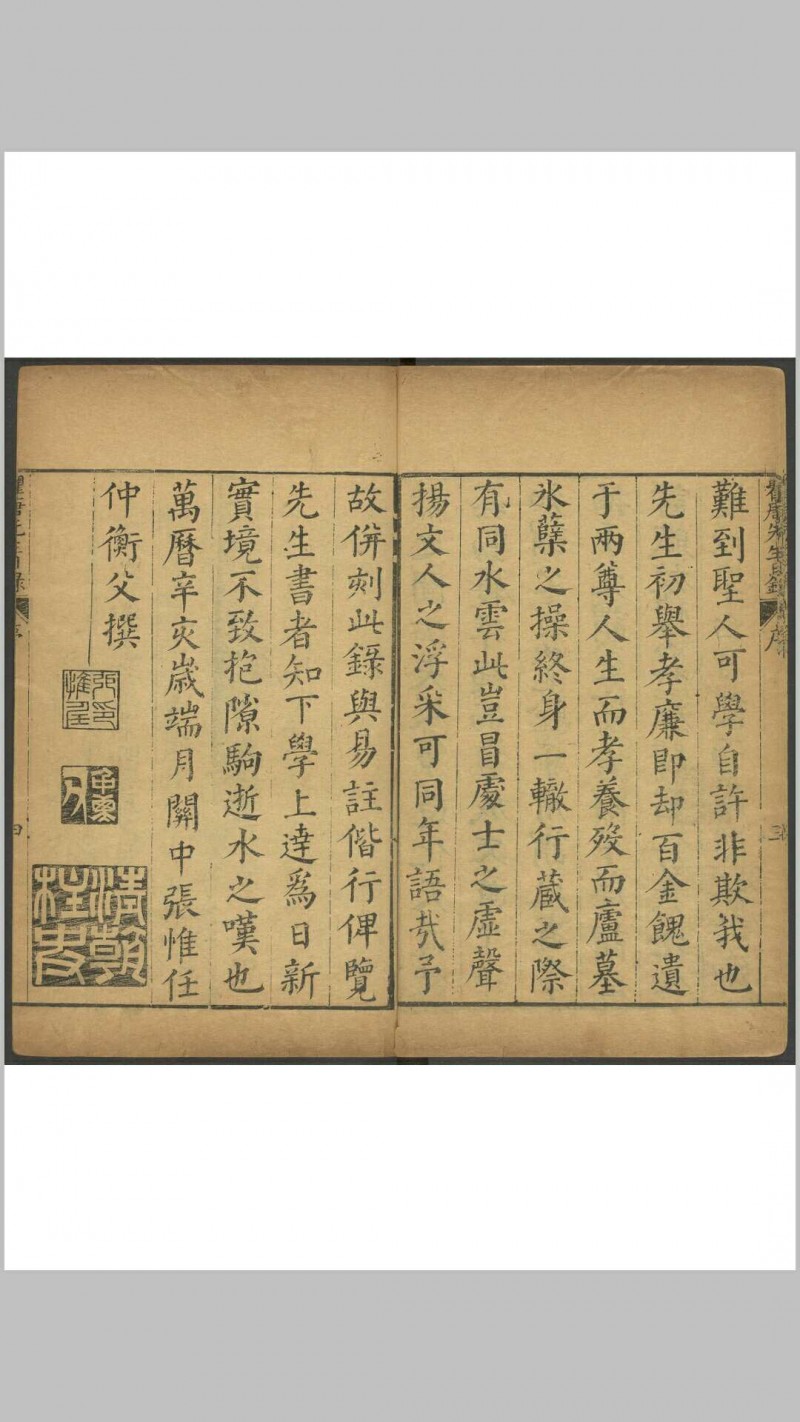 難到聖人可學自許非欺我也
先生初舉孝廉即却百金餽遺
于兩尊人生而孝養歿而廬墓
氷蘗之操終身一轍行藏之際
有同水雲此豈冒處士之虛聲
揚文人之浮采可同年語哉予
故併刻此錄與易註偕行俾覽
先生書者知下學上達爲日新
實境不致抱隙駒逝水之嘆也
萬曆辛亥歲端月關中張惟任
仲衡父撰